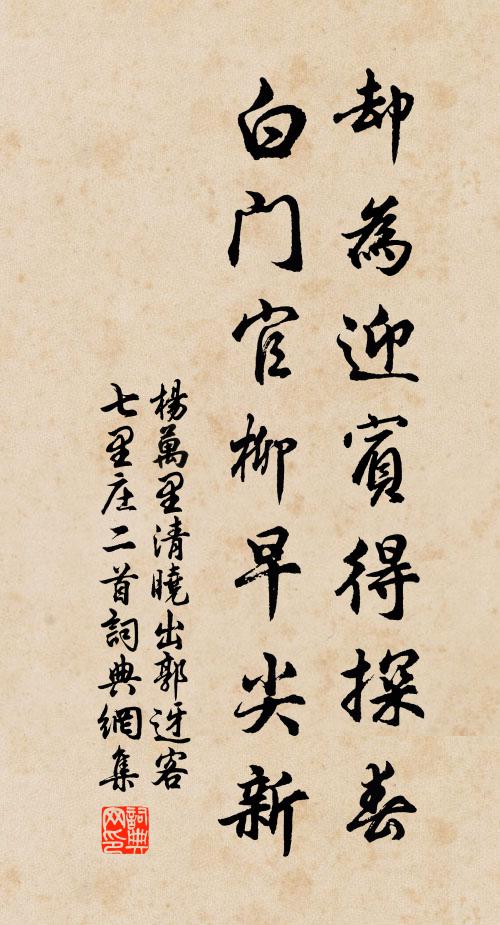 却為迎賓得探春
白門官柳早尖新
楊萬里清曉出郭迓客
七里庄二首詞典網集
詞典
网印